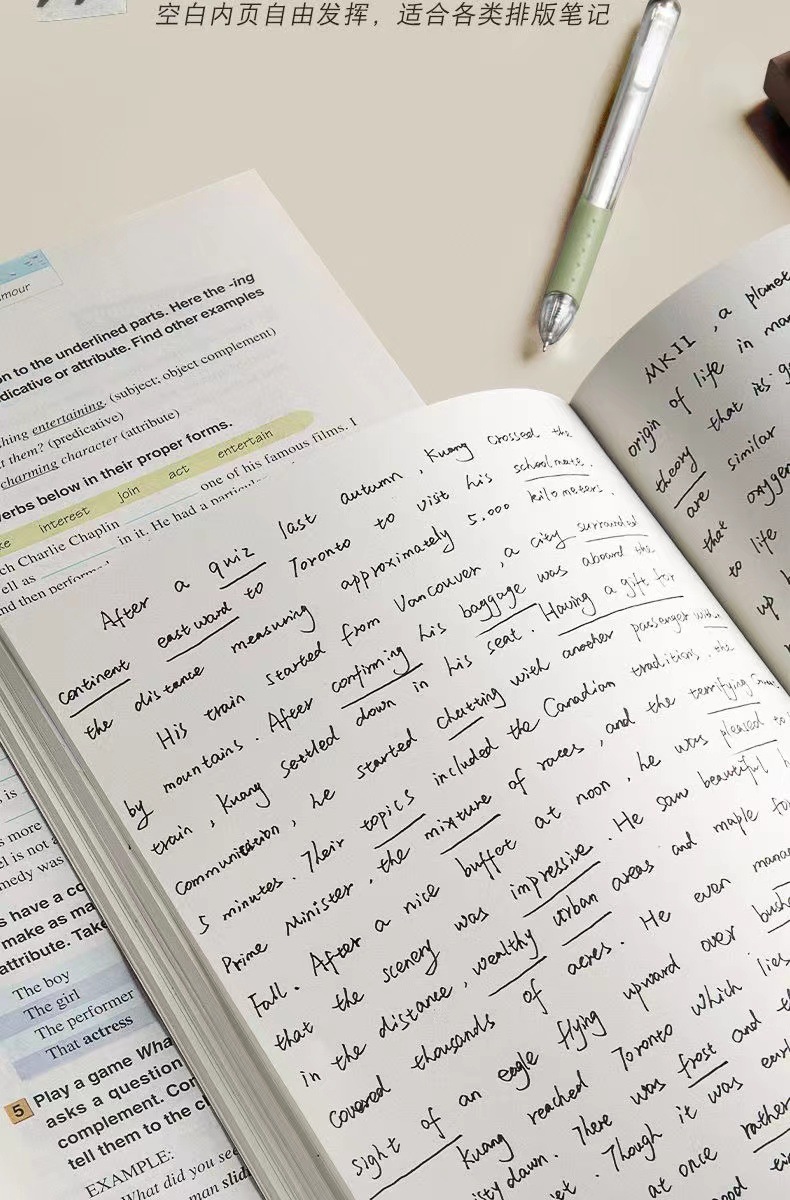 空白内页自由发挥，适合各类排版笔记
mour
on to the underlined parts. Here the -ing
dicative or attribute. Find other examples
hing entertaining. (subject; object complement)
t them? (predicative)
charming character (attribute)
verbs below in their proper forms.
ke interest join act entertain
ch Charlie Chaplin one of his famous films. I
ell as in it. He had a
nd then
s is
s more
el is not a
medy was
s have a co
make as ma
attribute. Take
The boy
The girl
The performer
That actress
5 Play a game What
asks a question
complement. Con
tell them to the cl
EXAMPLE:
What did you see
man slid
After a quiz last autumn, Kuang crossed the
continent eastward to Toronto to vist his schoolmate.
the distance measuring approximately 5,000 kilometers.
His train started from Vancouver, a city surrounded
by mountains. After confirming his baggage was aboard the
train, Kuang settled down in his seat. Having a gift for
communication, he started chatting with another passenger with
5 minutes. Their topics included the Canadian traditions, the
Prime Minister, the mixture of races, and the terrifying
Fall. After a nice buffet at noon, he was pleased to
that the scenery was impressive. He saw beautiful h
in the distance, wealthy urban areas and maple fo
covered thousands of acres. He even mana
sight of an eagle flying upward over bush
Kuang reached Toronto which lies
sty dawn. There was frost and th
et. Though it was earl
at once rather
ood
MKII, a planet
origin of life in ma
theory that its g
are similar
that oxygen
to life
up